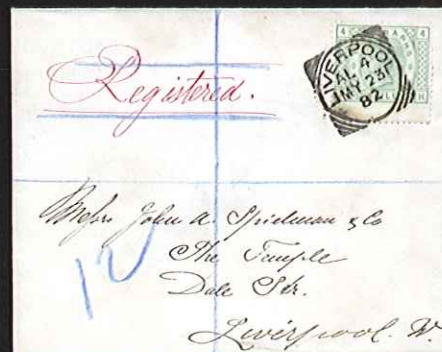 Registered.
LIVERPOOL
AL 4
MY 23
82
4
Messrs John A. Spielman & Co
The Temple
Dale Str.
Liverpool. W.
12